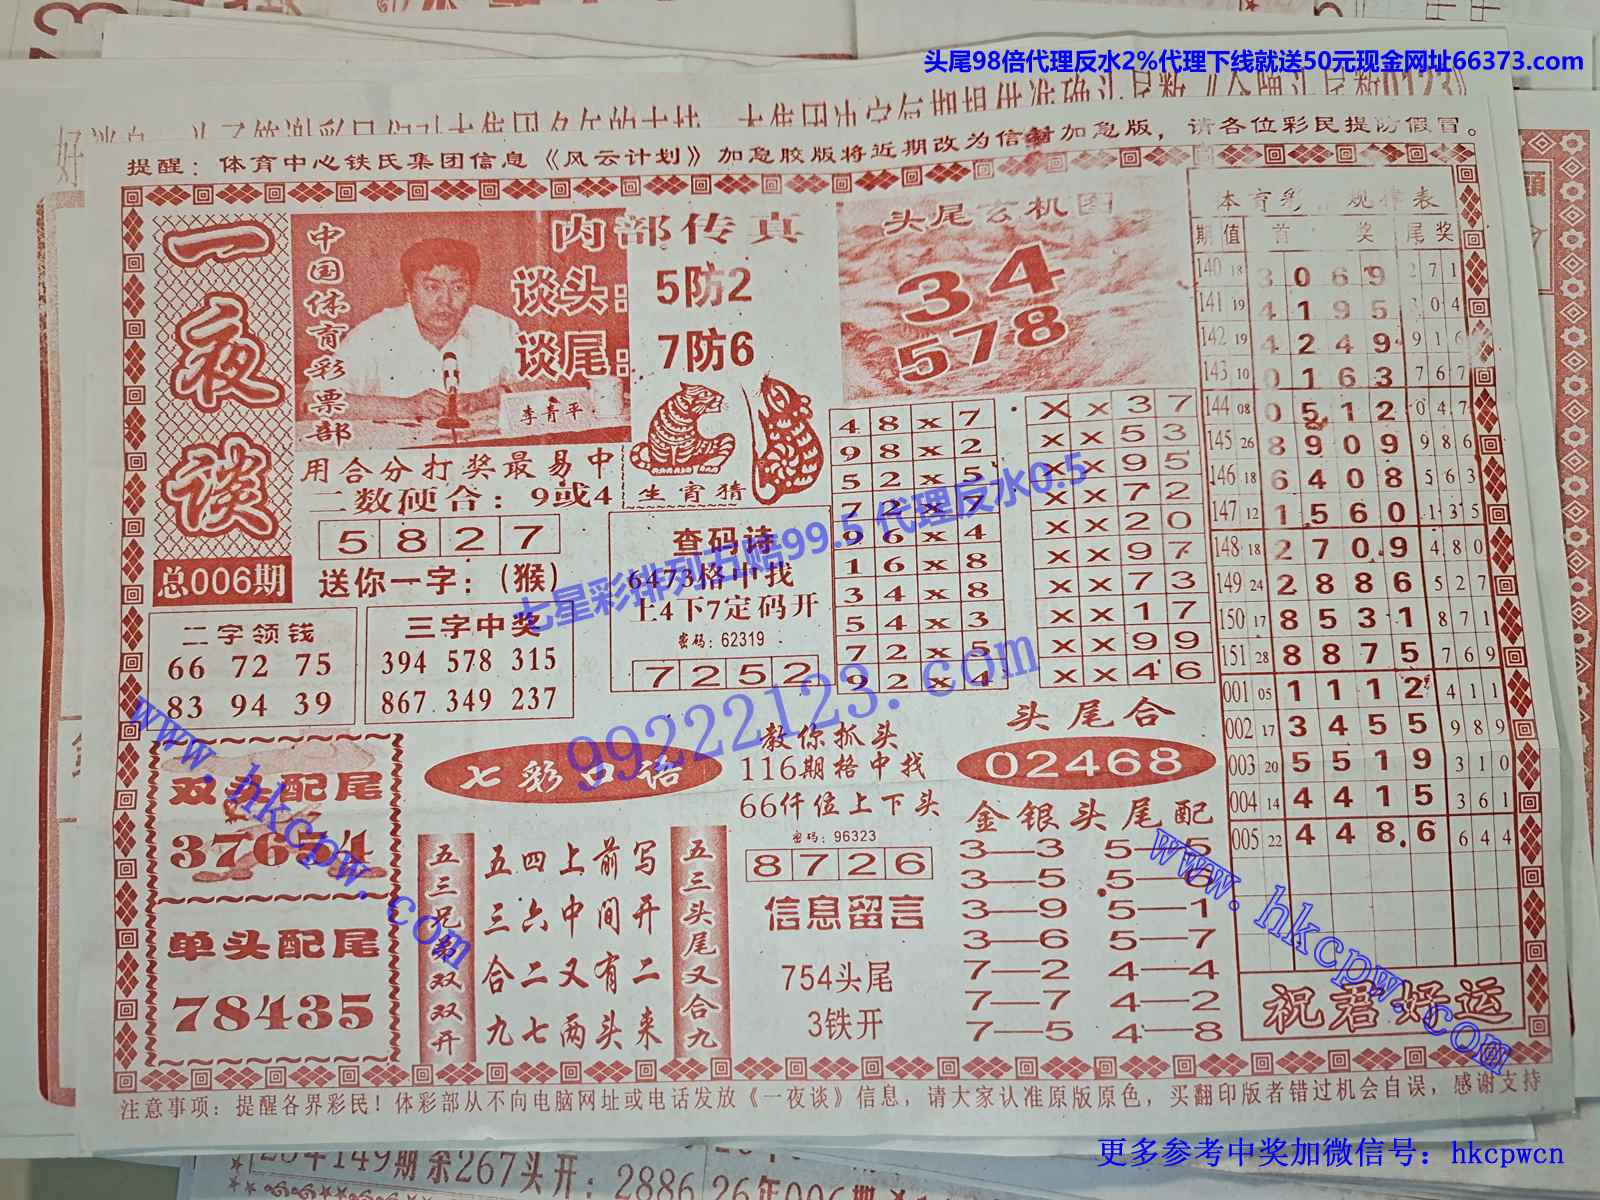 头尾98倍代理反水2%代理下线就送50元现金网址66373.com
提醒：体育中心铁氏集团信息《风云计划》加急胶版将近期改为信封加急版，请各位彩民提防假冒。
一夜谈
总006期
中国体育彩票部
内部传真
谈头：5防2
谈尾：7防6
李青平
用合分打奖最易中
二数硬合：9或4
5 8 2 7
送你一字：（猴）
生宵猜
头尾玄机图
34
578
二字领钱
66 72 75
83 94 39
三字中奖
394 578 315
867 349 237
查码诗
6473格中找
上4下7定码开
密码：62319
7 2 5 2
4 8 x 7
9 8 x 2
5 2 x 5
7 2 x 7
9 6 x 4
1 6 x 8
3 4 x 8
5 4 x 3
7 2 x 5
9 2 x 4
X x 3 7
x x 5 3
x x 9 5
x x 7 2
x x 2 0
x x 9 7
x x 7 3
x x 1 7
x x 9 9
x x 4 6
七星彩排列五赔99.5 代理反水0.5
99222123.com
www.hkcpw.com
双头配尾
37654
单头配尾
78435
七彩口语
五三兄弟双双开
五四上前写
三六中间开
合二又有二
九七两头来
五三头尾又合九
教你抓头
116期格中找
66仟位上下头
密码：96323
8 7 2 6
信息留言
754头尾
3铁开
头尾合
02468
金银头尾配
3—3 5—5
3—5 5—6
3—9 5—1
3—6 5—7
7—2 4—4
7—7 4—2
7—5 4—8
www.hkcpw.com
本育彩 规律表
期 值 首 奖 尾 奖
140 18 3 0 6 9 2 7 1
141 19 4 1 9 5 3 0 4
142 19 4 2 4 9 9 1 6
143 10 0 1 6 3 7 6 7
144 08 0 5 1 2 0 4 7
145 26 8 9 0 9 9 8 6
146 18 6 4 0 8 5 6 3
147 12 1 5 6 0 1 3 5
148 18 2 7 0 9 4 8 0
149 24 2 8 8 6 5 2 7
150 17 8 5 3 1 8 7 1
151 28 8 8 7 5 7 6 9
001 05 1 1 1 2 4 1 1
002 17 3 4 5 5 9 8 9
003 20 5 5 1 9 3 1 0
004 14 4 4 1 5 3 6 1
005 22 4 4 8 6 6 4 4
祝君好运
注意事项：提醒各界彩民！体彩部从不向电脑网址或电话发放《一夜谈》信息，请大家认准原版原色，买翻印版者错过机会自误，感谢支持
更多参考中奖加微信号：hkcpwcn